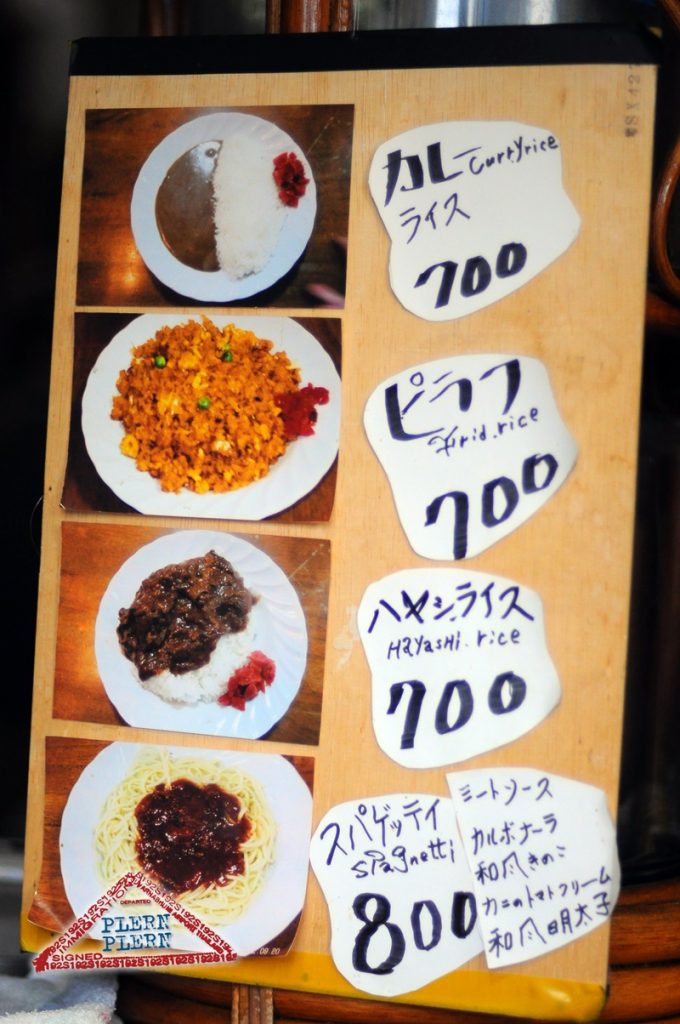 カレー Curryrice
ライス
700
ピラフ
Frid.rice
700
ハヤシライス
HaYaSHi.rice
700
スパゲッティ
spagnetti
800
ミートソース
カルボナーラ
和風きのこ
カニのトマトクリーム
和風明太子
DEPARTED
IMMIGRATION
PLERN
PLERN
SIGNED
192S192S192S192S192S192S